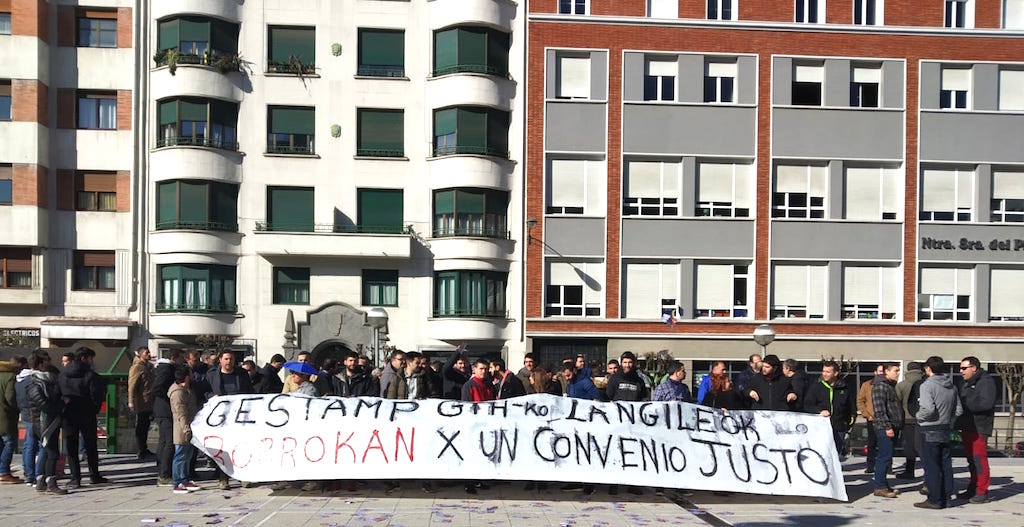 ELECTRICOS
Ntra. Sra. del P
GESTAMP GTH-Ko LANGILEOK
BORROKAN X UN CONVENIO JUSTO